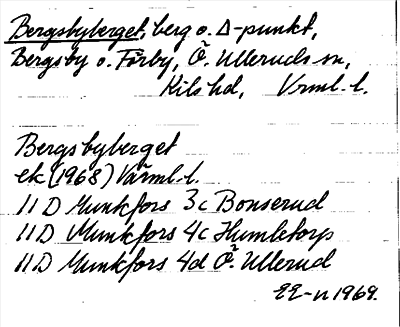 Bergsbyberget, berg o. Δ-punkt,
Bergsby o. Förby, Ö. Ulleruds sn,
Kils hd, Vrml. l.
Bergsbyberget
ek (1968) Värml. l.
11 D Munkfors 3c Bonserud
11 D Munkfors 4c Humletorp
11 D Munkfors 4d Ö. Ullerud
EE-n 1969.